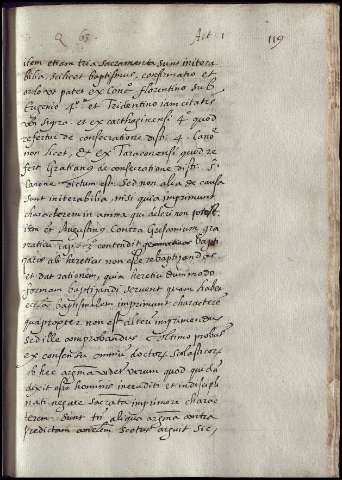 Q 63 Art. 1 119
item etiam tria sacramenta sunt initera
bilia, scilicet baptismus, confirmatio et
ordo ut patet ex Conc. florentino sub
Eugenio 4.º et Tridentino iam citatis
et ex carthaginensi 4.º quod
refertur de consecratione dist. 4. Cano
non licet, et ex Taraconensi quod re
fert Gratianus de consecratione dist. 5.
Canone dictum est. Sed non alia de causa
sunt initerabilia, nisi quia imprimunt
characterem in anima qui deleri non potest.
item et Augustinus Contra
contendit bapti
zatos ab hereticis non esse rebaptizandos
et dat rationem, quia heretici dummodo
formam baptizandi servent quam habet
ecclesia baptizallam imprimunt characterem
quapropter non est alter imprimendus
sed ille comprobandus. Ultimo probatur
ex consensu omnium doctorum scolasticorum
ob hec verum quod qui
dixit esse hominis ineruditi et indiscipli
nati negare sacramenta imprimere charac
terem. Sunt tamen aliqua argumenta contra
predictam Scotus arguit sic,